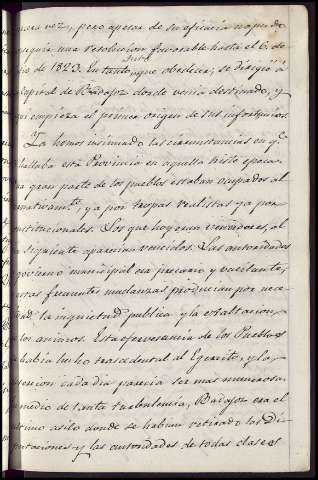 mera vez, pero apesar de su eficacia no pudo
seguir una resolucion favorable hasta el 6 de
de 1823. En tanto que obedecia, se dirigió á
Capital de Badajoz donde venia destinado, y
qui empieza el primer origen de sus infortunios.
Ya hemos insinuado las circunstancias en q.e
hallaba esta Provincia en aquella triste epoca.
na gran parte de los pueblos estaban ocupados al
ernativam.te, ya por tropas realistas ya por
nstitucionales. Los que hoy eran vencedores, al
siguiente aparecian vencidos. Las autoridades
govierno municipal era precario y vacilante,
estas frecuentes mudanzas producian por nece
dad la inquietud publica y la exaltacion
los animos. Esta efervescencia de los Pueblos
habia hecho trascedental al Egercito, y la
sercion cada dia parecia ser mas numerosa.
medio de tanta turbulencia, Badajoz era el
ltimo asilo donde se habian retirado las Di
putaciones y las autoridades de todas clases